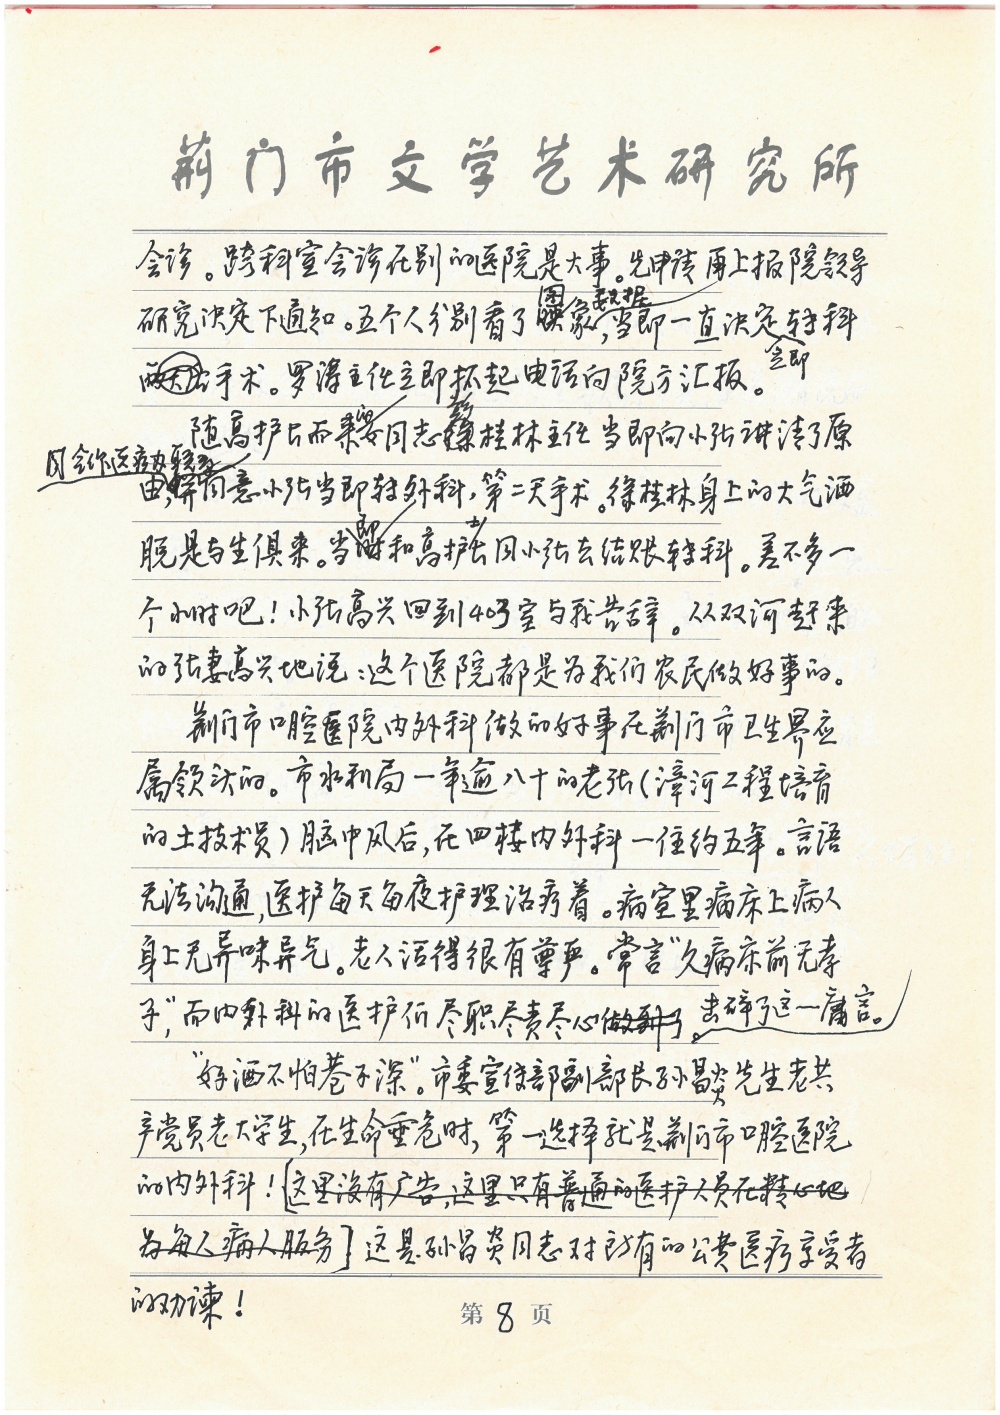 荆门市文学艺术研究所
会诊。跨科室会诊在别的医院是大事。先申请再上报院领导
研究决定下通知。五个人分别看了图象数据,当即一直决定转科
立即
手术。罗涛主任立即抓起电话向院方汇报。
随高护长而来的同志徐桂林主任当即向小张讲清了原
因合作医疗办联系
由,并同意小张当即转外科,第二天手术。徐桂林身上的大气洒
脱是与生俱来。当即和高护士长同小张去结账转科。差不多一
个小时吧!小张高兴回到403室与我告辞。从双河赶来
的张妻高兴地说:这个医院都是为我们农民做好事的。
荆门市口腔医院内外科做的好事在荆门市卫生界应
属领头的。市水利局一年逾八十的老张(漳河工程培育
的土技术员)脑中风后,在四楼内外科一住约五年。言语
无法沟通,医护每天每夜护理治疗着。病室里病床上病人
身上无异味异气。老人活得很有尊严。常言“久病床前无孝
子”,而内外科的医护们尽职尽责尽心做到了。击碎了这一庸言。
“好酒不怕巷子深”。市委宣传部副部长孙昌炎先生老共
产党员老大学生,在生命垂危时,第一选择就是荆门市口腔医院
的内外科![这里没有广告,这里只有普通的医护人员在精心地
为每人病人服务]这是孙昌炎同志对所有的公费医疗享受者
的劝谏!
第8页